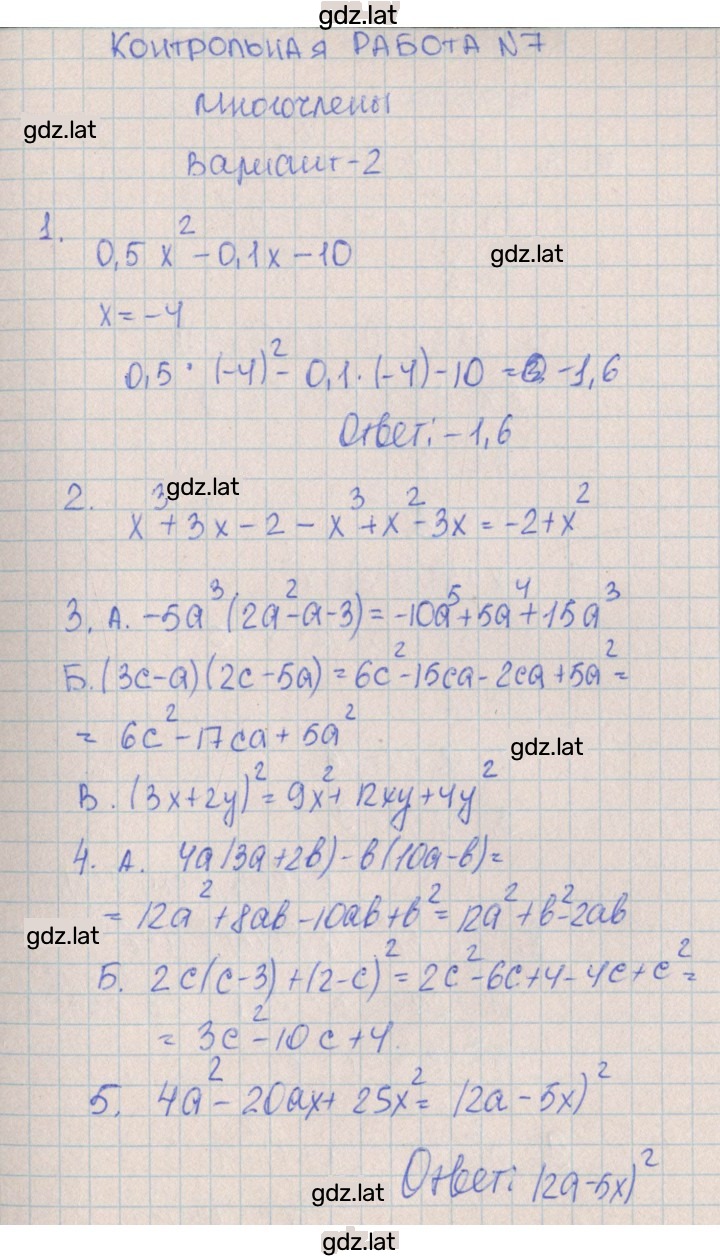 gdz.lat
КОНТРОЛЬНАЯ РАБОТА №7
Многочлены
gdz.lat
Вариант-2
1.
0,5x² - 0,1x - 10
gdz.lat
x = -4
0,5 · (-4)² - 0,1 · (-4) - 10 = -1,6
Ответ: -1,6
gdz.lat
2. x³ + 3x - 2 - x³ + x² - 3x = -2 + x²
3. А. -5a³(2a² - a - 3) = -10a⁵ + 5a⁴ + 15a³
Б. (3c - a)(2c - 5a) = 6c² - 15ca - 2ca + 5a² =
= 6c² - 17ca + 5a²
gdz.lat
В. (3x + 2y)² = 9x² + 12xy + 4y²
4. А. 4a(3a + 2b) - b(10a - b) =
= 12a² + 8ab - 10ab + b² = 12a² + b² - 2ab
gdz.lat
Б. 2c(c - 3) + (2 - c)² = 2c² - 6c + 4 - 4c + c² =
= 3c² - 10c + 4.
5. 4a² - 20ax + 25x² = (2a - 5x)²
Ответ: (2a - 5x)²
gdz.lat
gdz.lat